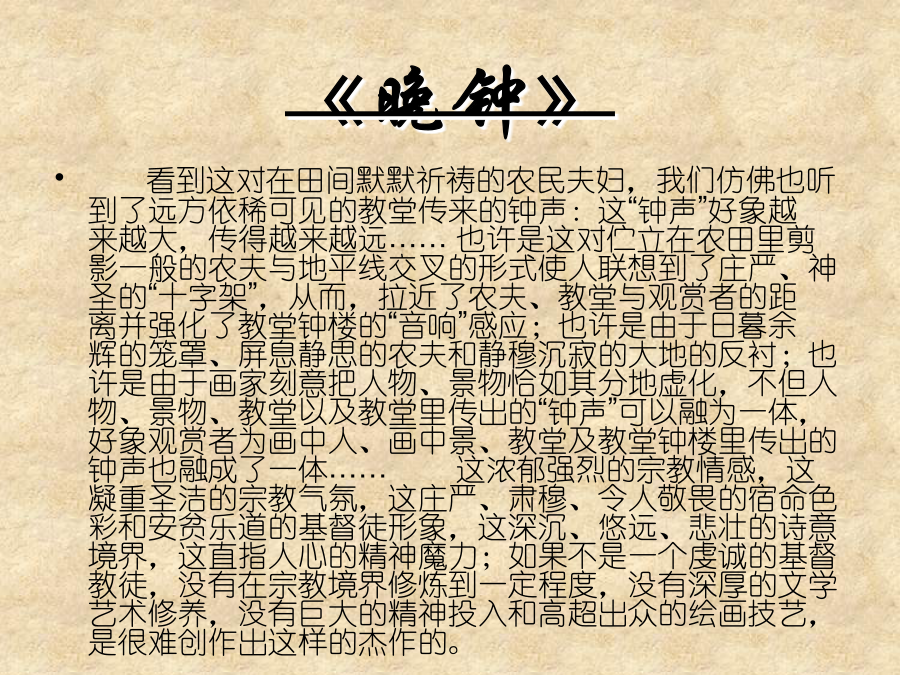 《晚钟》
• 看到这对在田间默默祈祷的农民夫妇，我们仿佛也听
到了远方依稀可见的教堂传来的钟声：这“钟声”好象越
来越大，传得越来越远…… 也许是这对伫立在农田里剪
影一般的农夫与地平线交叉的形式使人联想到了庄严、神
圣的“十字架”，从而，拉近了农夫、教堂与观赏者的距
离并强化了教堂钟楼的“音响”感应；也许是由于日暮余
辉的笼罩、屏息静思的农夫和静穆沉寂的大地的反衬；也
许是由于画家刻意把人物、景物恰如其分地虚化，不但人
物、景物、教堂以及教堂里传出的“钟声”可以融为一体，
好象观赏者为画中人、画中景、教堂及教堂钟楼里传出的
钟声也融成了一体…… 这浓郁强烈的宗教情感，这
凝重圣洁的宗教气氛，这庄严、肃穆、令人敬畏的宿命色
彩和安贫乐道的基督徒形象，这深沉、悠远、悲壮的诗意
境界，这直指人心的精神魔力；如果不是一个虔诚的基督
教徒，没有在宗教境界修炼到一定程度，没有深厚的文学
艺术修养，没有巨大的精神投入和高超出众的绘画技艺，
是很难创作出这样的杰作的。